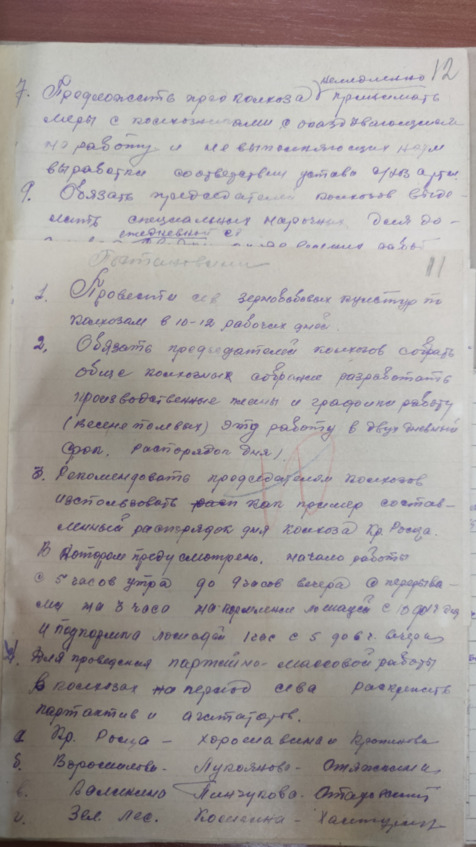 12
немедленно
7. Предложить пред колхоза принимать
меры с колхозниками с опаздывающими
на работу и не выполняющих норм
выработки соответствии устава с/хоз арт.
9. Обязать председателей колхозов выде-
лить специальных нарочных для до-
ежедневной
11
Постановили
1. Провести сев зернобобовых культур по
колхозам в 10-12 рабочих дней.
2. Обязать председателей колхозов собрать
обще колхозных собрание разработать
производственные планы и графики работу
(весенне полевых) эту работу в двух дневный
срок. распорядок дня).
3. Рекомендовать председателям колхозов
использовать как пример состав-
ленный распрядок дня колхоза Кр. Роща.
В котором предусмотрено. начало работы
с 5 часов утра до 9 часов вечера с перерыва-
ми на 3 часа на кормление лошадей с 10
и подкормка лошадей 1 час с 5 до 6 ч. вечера
4. Для проведения партийно-массовой работы
в колхозах на период сева раскрепить
партактив и агитаторов.
а. Кр. Роща -
б. Ворошилова - Лукоянова -
в. Калинина Пинзукова -
г. Зел. Лес. Косткина -